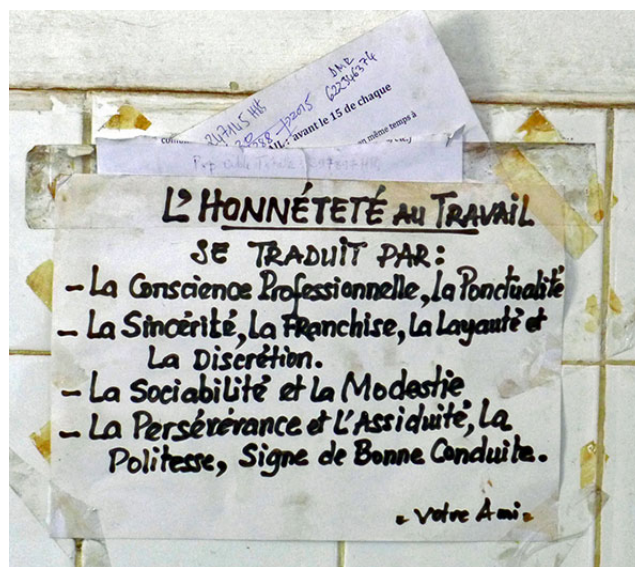 247145 HB
DMR
622346374
avant le 15 de chaque
en même temps à
L'HONNÉTETÉ AU TRAVAIL
SE TRADUIT PAR:
- La Conscience Professionnelle, la Ponctualité
- La Sincérité, la Franchise, la Layauté et
La Discrétion.
- La Sociabilité et la Modestie
- La Persévérance et l'Assiduité, La
Politesse, Signe de Bonne Conduite.
- Votre Ami -